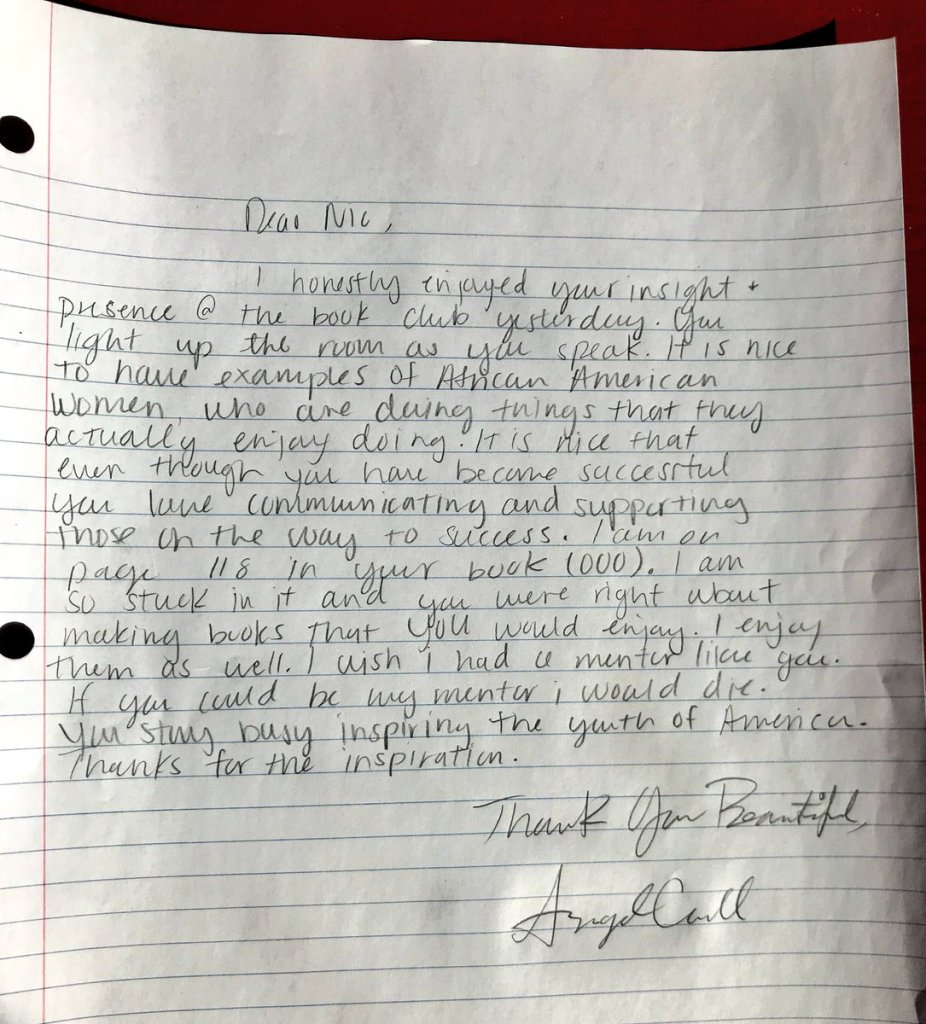 Dear Nic,
I honestly enjoyed your insight +
presence @ the book club yesterday. You
light up the room as you speak. It is nice
to have examples of African American
women, who are doing things that they
actually enjoy doing. It is nice that
even though you have become successful
you love communicating and supporting
those on the way to success. I am on
page 118 in your book (OOO). I am
so stuck in it and you were right about
making books that YOU would enjoy. I enjoy
them as well. I wish i had a mentor like you.
If you could be my mentor i would die.
You stay busy inspiring the youth of America.
Thanks for the inspiration.
Thank You Beautiful,
Angel